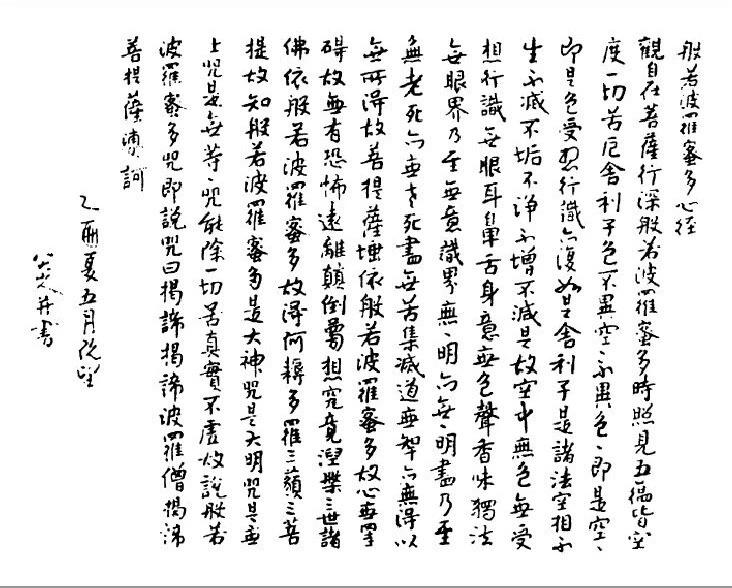 般若波羅蜜多心經
觀自在菩薩行深般若波羅蜜多時照見五蘊皆空
度一切苦厄舍利子色不異空、不異色、即是空、
即是色受想行識亦復如是舍利子是諸法空相不
生不滅不垢不淨不增不減是故空中無色無受
想行識無眼耳鼻舌身意無色聲香味觸法
無眼界乃至無意識界無、明亦無、明盡乃至
無老死亦無老死盡無苦集滅道無智亦無得以
無所得故菩提薩埵依般若波羅蜜多故心無罣
礙故無有恐怖遠離顛倒夢想究竟涅槃三世諸
佛依般若波羅蜜多故得阿耨多羅三藐三菩
提故知般若波羅蜜多是大神咒是大明咒是無
上咒是無等、咒能除一切苦真實不虛故說般若
波羅蜜多咒即說咒曰揭諦揭諦波羅僧揭諦
菩提薩婆訶
乙酉夏五月既望
并書